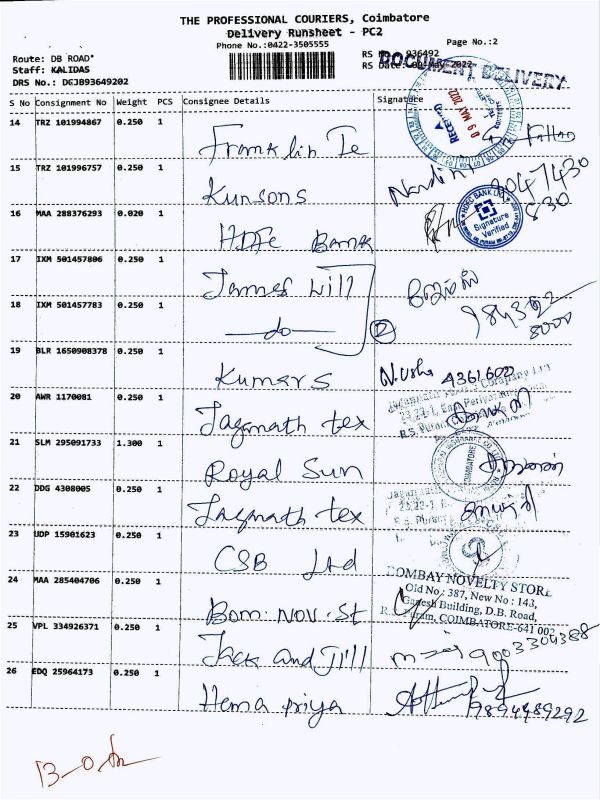 THE PROFESSIONAL COURIERS, Coimbatore
Delivery Runsheet - PC2
Phone No.:0422-3505555
Page No.:2
Route: DB ROAD*
RS No. 936492
Staff: KALIDAS
RS Date: May-2022
DOCUMENT DELIVERY
DRS No.: DGJ893649202
S No Consignment No Weight PCS Consignee Details Signature
RECEIVED
09 MAY 2022
14 TRZ 101994867 0.250 1
Franklin Te
15 TRZ 101996757 0.250 1
Kunsons
Nandini
16 MAA 288376293 0.020 1
HDFC Bank
HDFC BANK LTD
Signature
Verified
17 IXM 501457806 0.250 1
James Will
18 IXM 501457783 0.250 1
do
2
19 BLR 1650908378 0.250 1
Kumars N.Usha 4361600
20 AWR 1170081 0.250 1
Jagannath tex
21 SLM 295091733 1.300 1
Royal Sun
COIMBATORE
22 DDG 4308005 0.250 1
Jagnath tex
23 UDP 15901623 0.250 1
CSB Ltd
24 MAA 285404706 0.250 1
Bom. Nov. St
BOMBAY NOVELTY STORE
Old No : 387, New No : 143,
Ganesh Building, D.B. Road,
R.S. Puram, COIMBATORE-641 002
25 VPL 334926371 0.250 1
Jack and Jill 9003304388
26 EDQ 25964173 0.250 1
Hema priya
9894489292